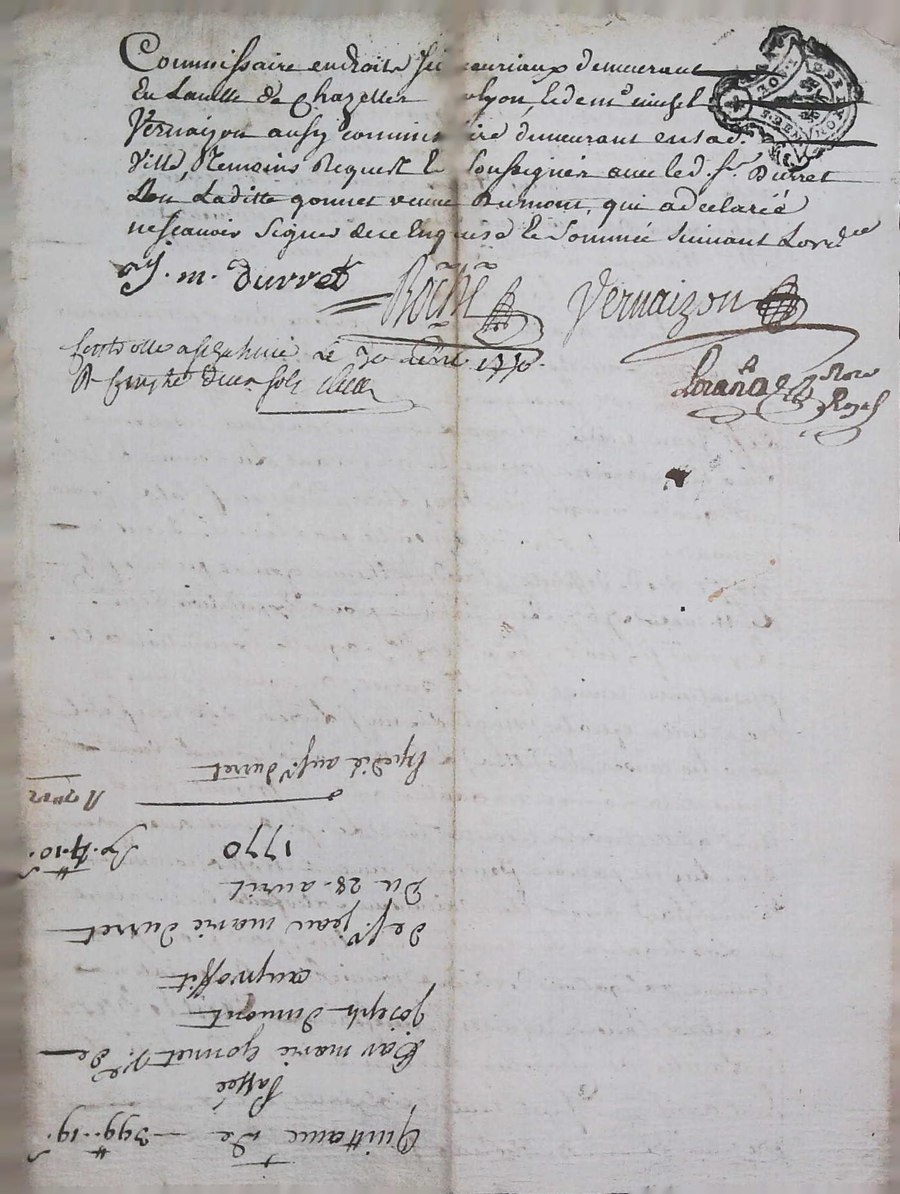 Commissaire en droits seigneuriaux demeurant
En la ville de Chazelles Lyon, le dem.
Vernaizon aussy commissaire demeurant en sad.
Ville, Temoins Requis et Soussignés avec led. Sr. Durret
Non Laditte gonnet veuve Dumont, qui a declaré
ne scavoir signer de ce Enquise et Sommée suivant Lord.ce
J. m. durret
Vernaizon
le 30 avril 1770.
Royal
Quittance de 399.ᵗᵗ 19.ˢ
Passée
Par marie gonnet Vᵉ de
Joseph dumont
au proffit
de Sr. jean marie durret
Du 28. avril
1770
4.ᵗᵗ 10.ˢ
Expedié au Sr. durret